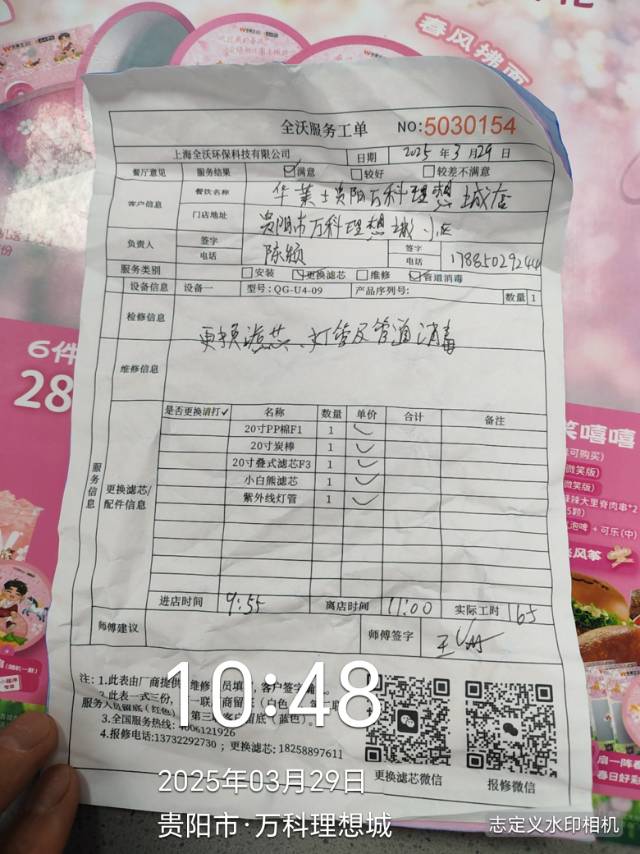 春风拂面
全沃服务工单 NO:5030154
上海全沃环保科技有限公司 日期 2025年3月29日
餐厅意见 服务结果 ☑满意 □较好 □较差不满意
客户信息 餐饮名称 华莱士贵阳万科理想城店
门店地址 贵阳市万科理想城小区
负责人 签字 陈颖 签字
电话 电话 17885029244
服务类别 □安装 ☑更换滤芯 □维修 ☑管道消毒
设备信息 设备一 型号:QG-U4-09 产品序列号: 数量 1
检修信息 更换滤芯、灯管及管道消毒
维修信息
服务信息 更换滤芯/配件信息
是否更换请打✓ 名称 数量 单价 合计 备注
20寸PP棉F1 1 ✓
20寸炭棒 1 ✓
20寸叠式滤芯F3 1 ✓
小白熊滤芯 1 ✓
紫外线灯管 1 ✓
进店时间 9:55 离店时间 11:00 实际工时 165
师傅建议 师傅签字
注:1.此表由厂商提供 维修 员填 ,客户签
2.此表一式三份, 一联 商留
服务人员留底(红色) 第三 客 留底(蓝色)。
3.全国服务热线: 4006121926
4.报修电话:13732292730 ; 更换滤芯:18258897611
更换滤芯微信 报修微信
10:48
2025年03月29日
贵阳市·万科理想城
志定义水印相机
6件
28
笑嘻嘻
可购买)
微笑版)
微笑版)
辣大里脊肉串*2
5颗)
泡啤 + 可乐(中)
风筝
扇一阵春
春日好彩